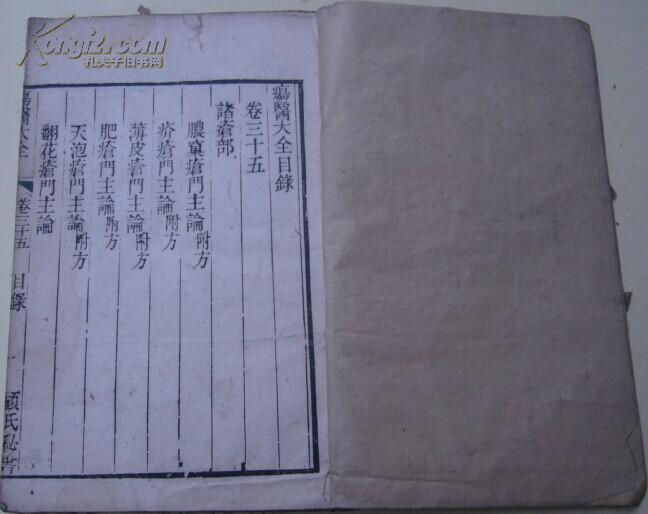 瘍醫大全目錄
卷三十五
諸瘡部
膿窠瘡門主論附方
疥瘡門主論附方
薄皮瘡門主論附方
肥瘡門主論附方
天泡瘡門主論附方
翻花瘡門主論
瘍醫大全 卷三十五 目錄 一 顧氏秘書
Kongfz.com
孔夫子旧书网